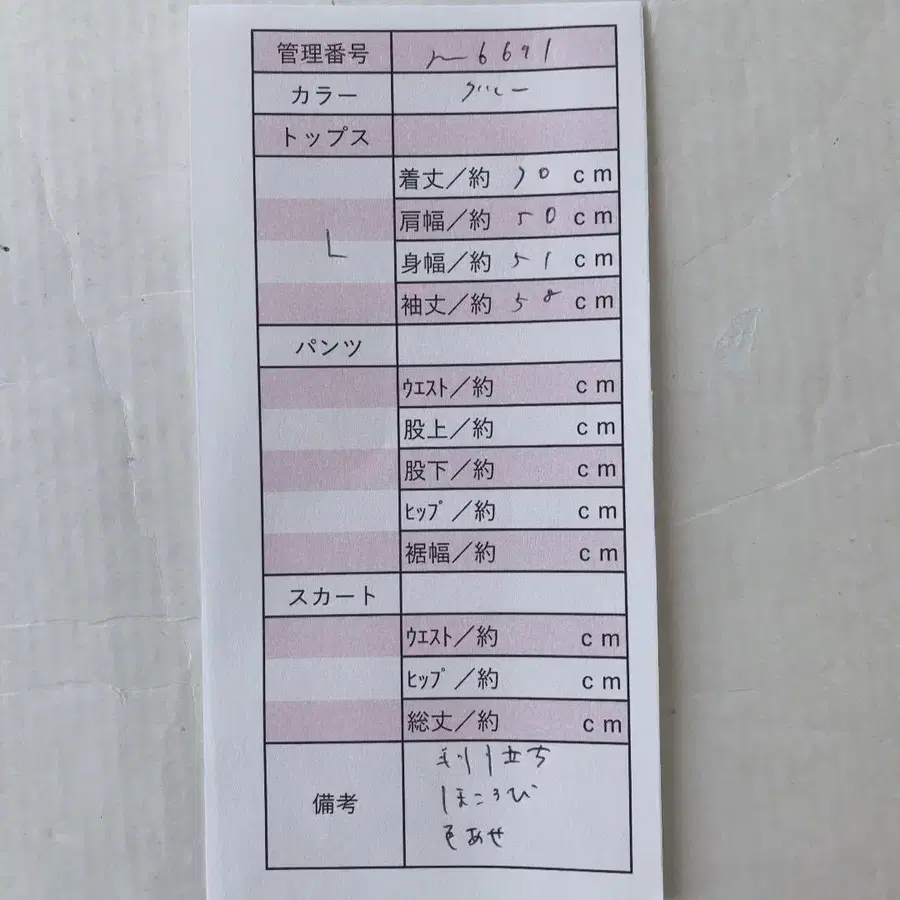 管理番号 6691
カラー
トップス
L
着丈/約 70 cm
肩幅/約 50 cm
身幅/約 51 cm
袖丈/約 58 cm
パンツ
ｳｴｽﾄ/約 cm
股上/約 cm
股下/約 cm
ﾋｯﾌﾟ/約 cm
裾幅/約 cm
スカート
ｳｴｽﾄ/約 cm
ﾋｯﾌﾟ/約 cm
総丈/約 cm
備考
毛羽立ち
ほころび
色あせ